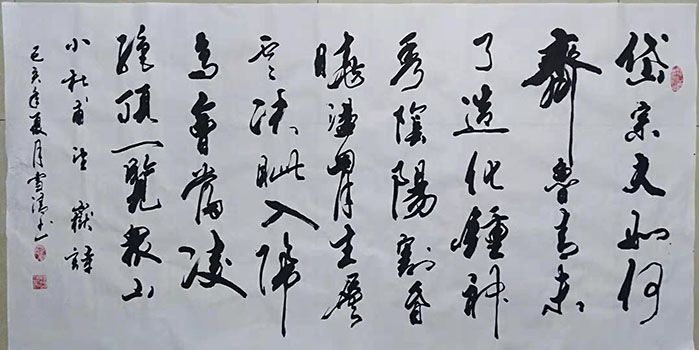 岱宗夫如何
齊魯青未
了造化鍾神
秀陰陽割昏
曉盪胷生層
雲決眦入歸
鳥會當凌
絕頂一覽眾山
小杜甫望嶽詩
己亥年夏月雪濤